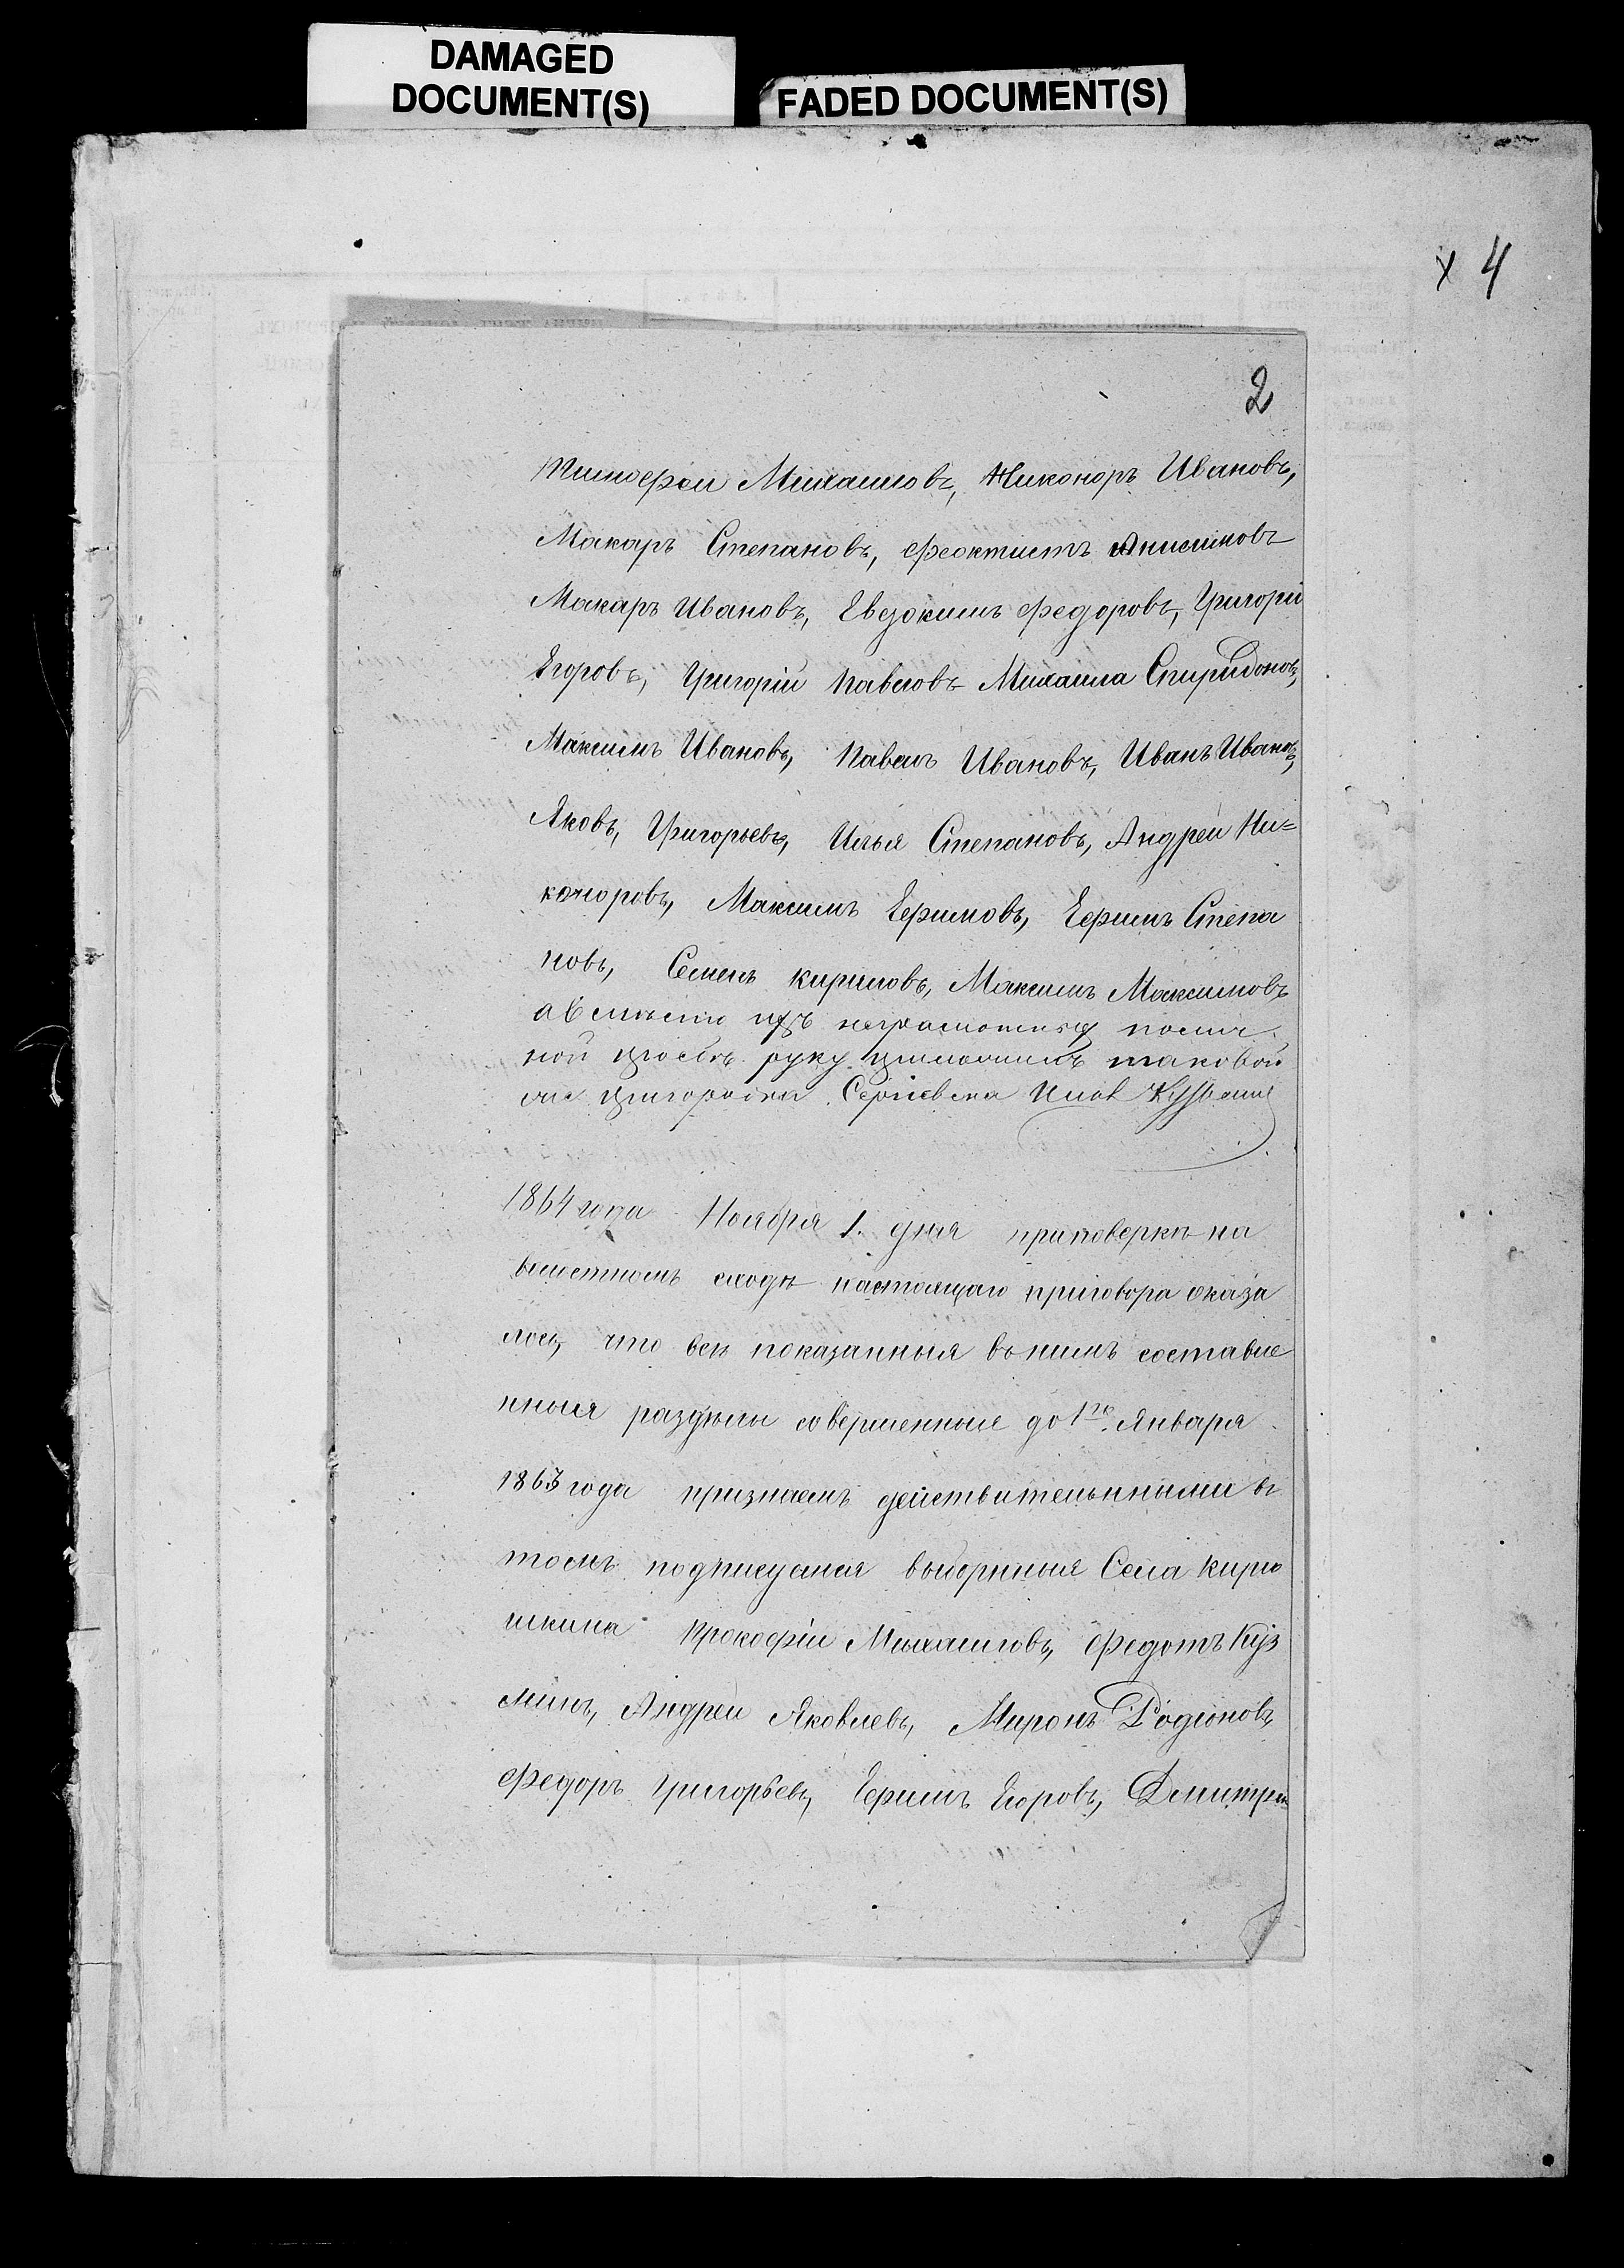 DAMAGED
DOCUMENT(S)
FADED DOCUMENT(S)
х 4
2
Тимофеи Михаиловъ, Никоноръ Ивановъ,
Макаръ Степановъ, Феоктистъ Анисимовъ
Макаръ Ивановъ, Евдокимъ Федоровъ, Григорій
Егоровъ, Григорій Павловъ Михаила Спиридоновъ,
Максимъ Ивановъ, Павелъ Ивановъ, Иванъ Ивановъ,
Яковъ, Григорьевъ, Илья Степановъ, Андреи Ни=
коноровъ, Максимъ Ефимовъ, Ефимъ Степа
новъ, Семенъ Кириловъ, Максимъ Максимовъ
а вместо ихъ неграмотныхъ по лич
ной прозбѣ руку приложилъ таковой
же пригородка Сергіевска
1864 года Ноября 1. дня приповеркѣ на
волостномъ сходѣ настоящаго приговора оказа
лось, что всѣ показанныя вонимъ составле
нныя раздѣлы совершенные до 1го Января
1863 года признаемъ действительнными въ
томъ подписуемся выборнныя Села Кирю
шкина Прокофіи Михаиловъ, Федотъ Куз
минъ, Андреи Яковлевъ, Миронъ Родіоновъ,
Федоръ Григорьевъ, Ефимъ Егоровъ, Дмитріи